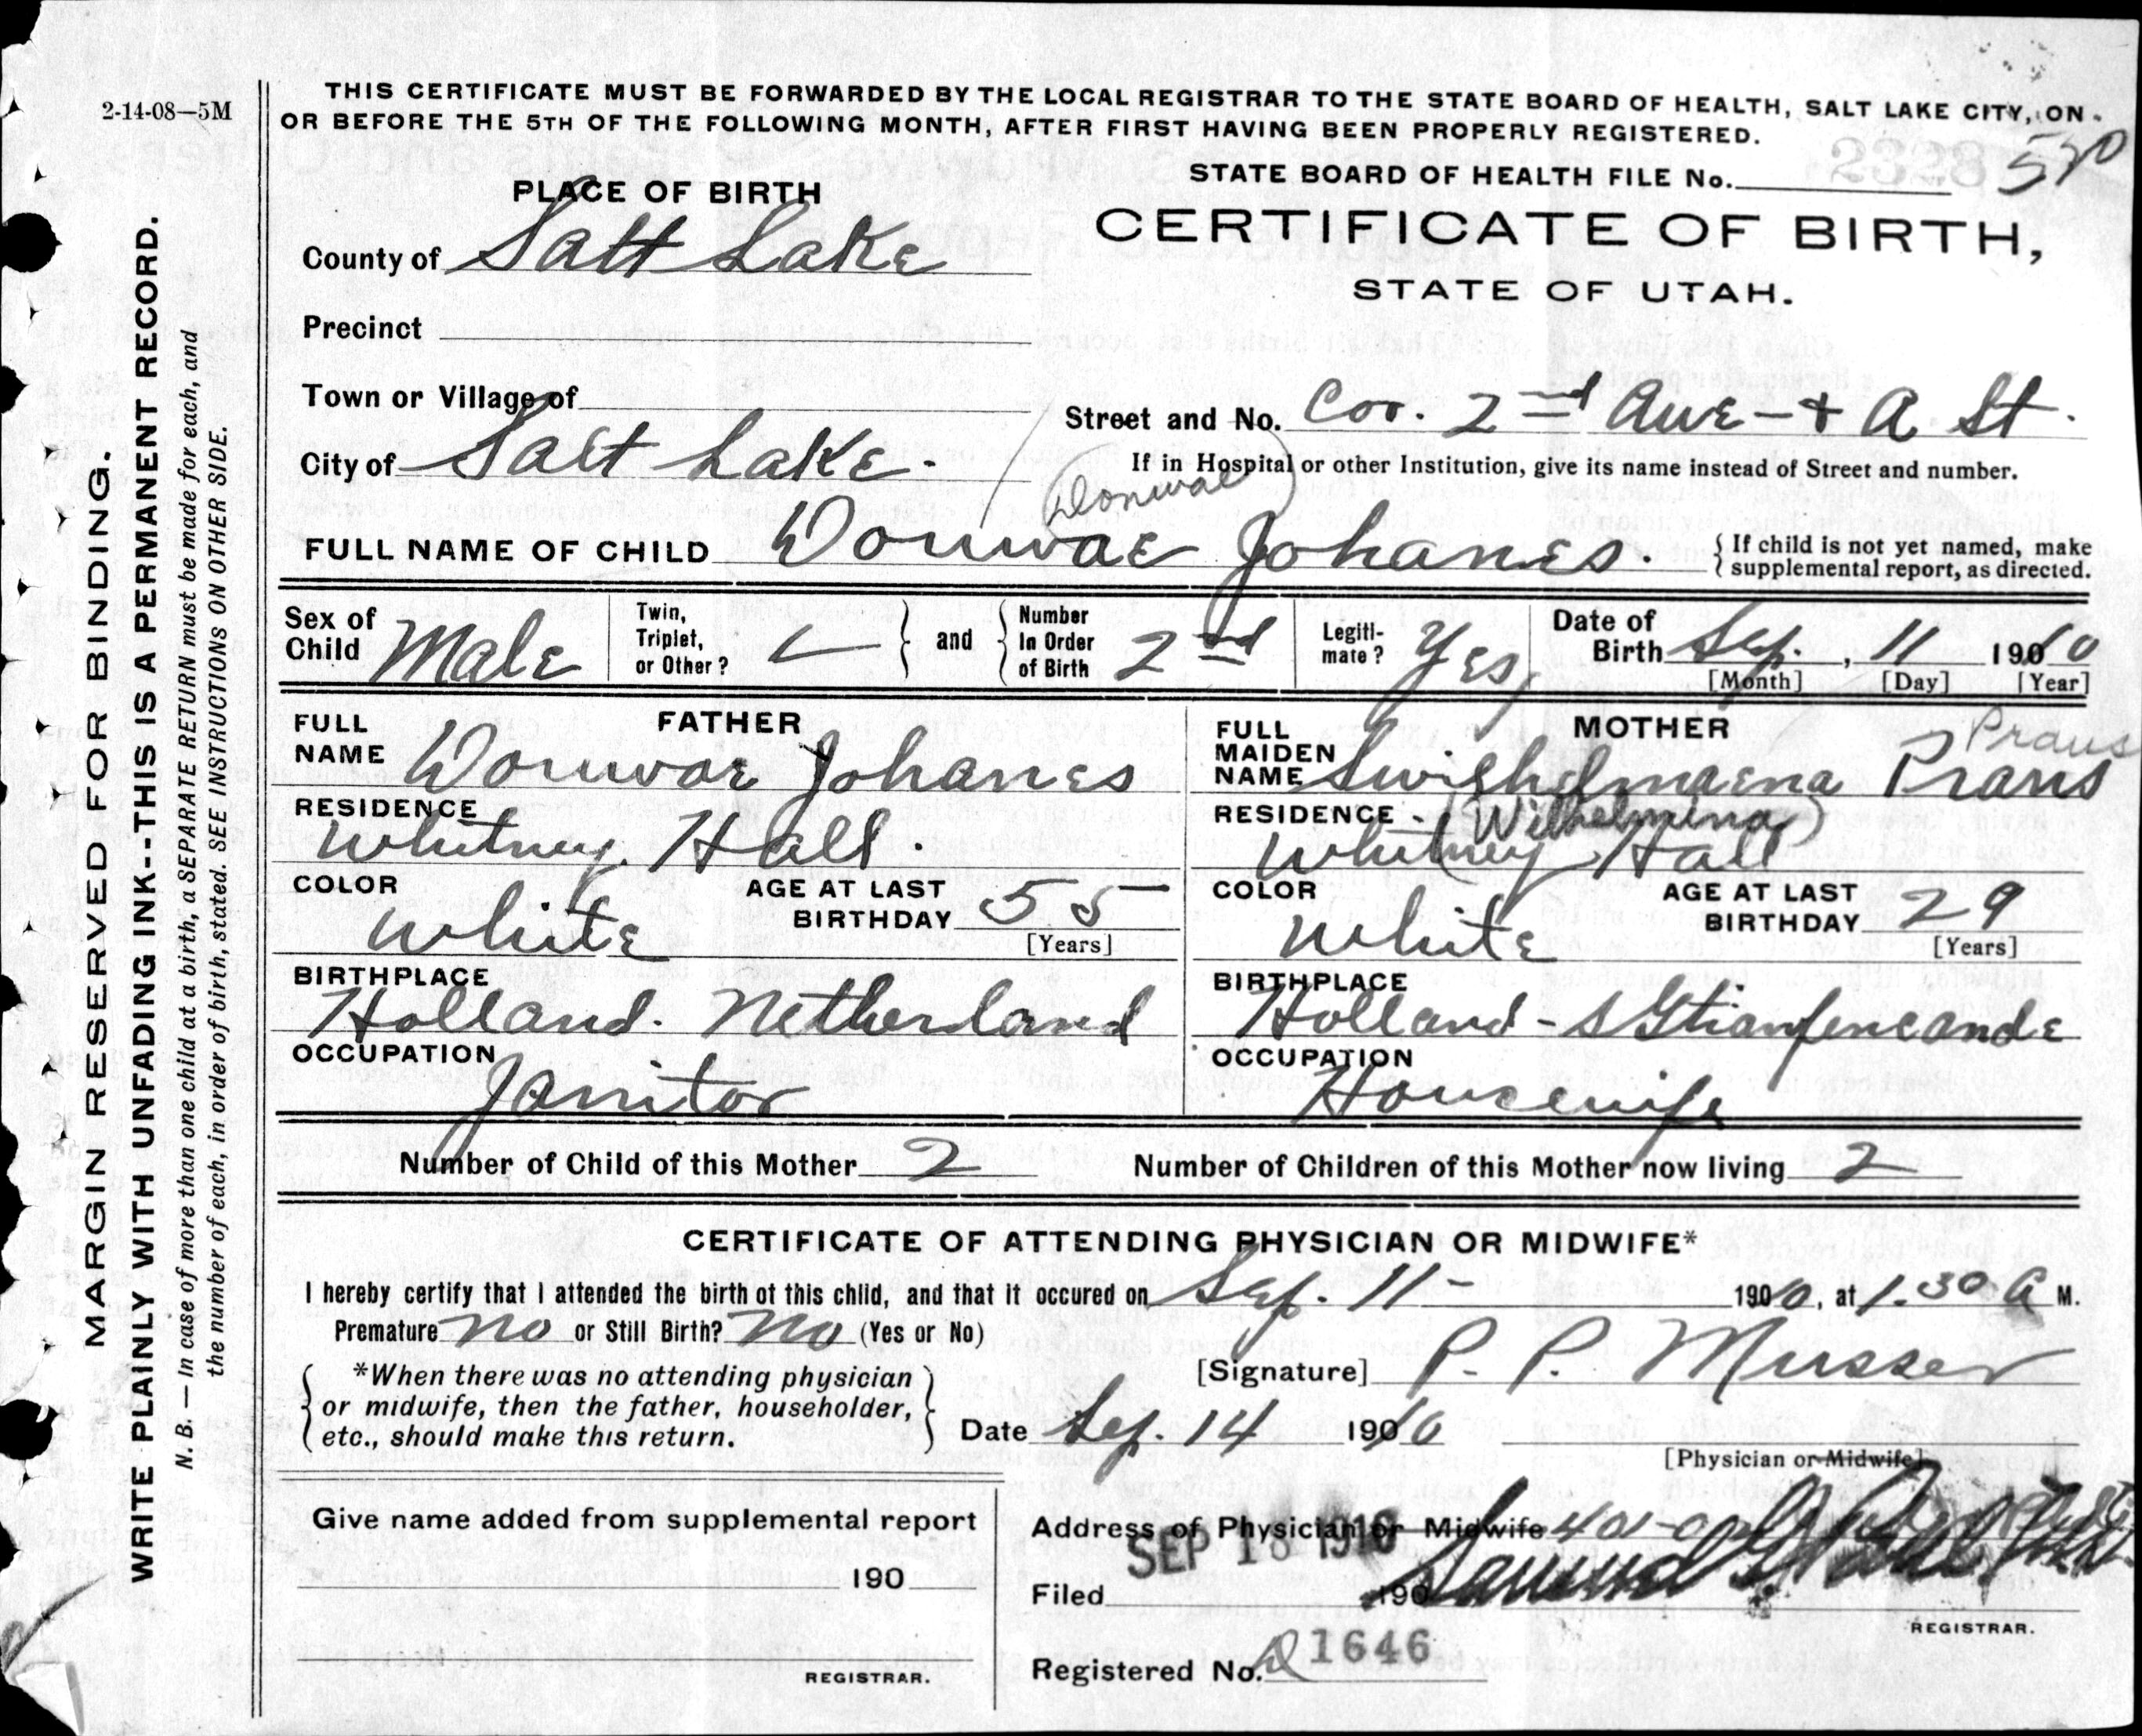 2-14-08—5M
THIS CERTIFICATE MUST BE FORWARDED BY THE LOCAL REGISTRAR TO THE STATE BOARD OF HEALTH, SALT LAKE CITY, ON
OR BEFORE THE 5TH OF THE FOLLOWING MONTH, AFTER FIRST HAVING BEEN PROPERLY REGISTERED.
STATE BOARD OF HEALTH FILE No.
PLACE OF BIRTH
CERTIFICATE OF BIRTH,
STATE OF UTAH.
County of Salt Lake
Precinct
Town or Village of
Street and No. Cor. 2nd Ave - + A St.
City of Salt Lake.
If in Hospital or other Institution, give its name instead of Street and number.
FULL NAME OF CHILD Johanes.
{ If child is not yet named, make
supplemental report, as directed.
Sex of Child Male
Twin, Triplet, or Other?
and
Number In Order of Birth 2nd
Legiti-mate? Yes
Date of Birth Sep. , 11 1910
[Month] [Day] [Year]
FATHER
FULL NAME Johanes
RESIDENCE
Whitney Hall.
COLOR White
AGE AT LAST BIRTHDAY 55
[Years]
BIRTHPLACE
Holland. Netherland
OCCUPATION
Janitor
MOTHER
FULL MAIDEN NAME Praus
(Wilhelmina)
RESIDENCE
Whitney Hall
COLOR White
AGE AT LAST BIRTHDAY 29
[Years]
BIRTHPLACE
Holland -
OCCUPATION
Housewife
Number of Child of this Mother 2
Number of Children of this Mother now living 2
CERTIFICATE OF ATTENDING PHYSICIAN OR MIDWIFE*
I hereby certify that I attended the birth of this child, and that it occured on Sep. 11 - 1910, at 1.30 A M.
Premature no or Still Birth? no (Yes or No)
*When there was no attending physician
or midwife, then the father, householder,
etc., should make this return.
[Signature] P. P. Musser
Date Sep. 14 1910
[Physician or Midwife]
Give name added from supplemental report
190
REGISTRAR.
Address of Physician or Midwife
SEP 1910
Filed 190
REGISTRAR.
Registered No. 1646
MARGIN RESERVED FOR BINDING.
WRITE PLAINLY WITH UNFADING INK--THIS IS A PERMANENT RECORD.
N. B. — In case of more than one child at a birth, a SEPARATE RETURN must be made for each, and
the number of each, in order of birth, stated. SEE INSTRUCTIONS ON OTHER SIDE.